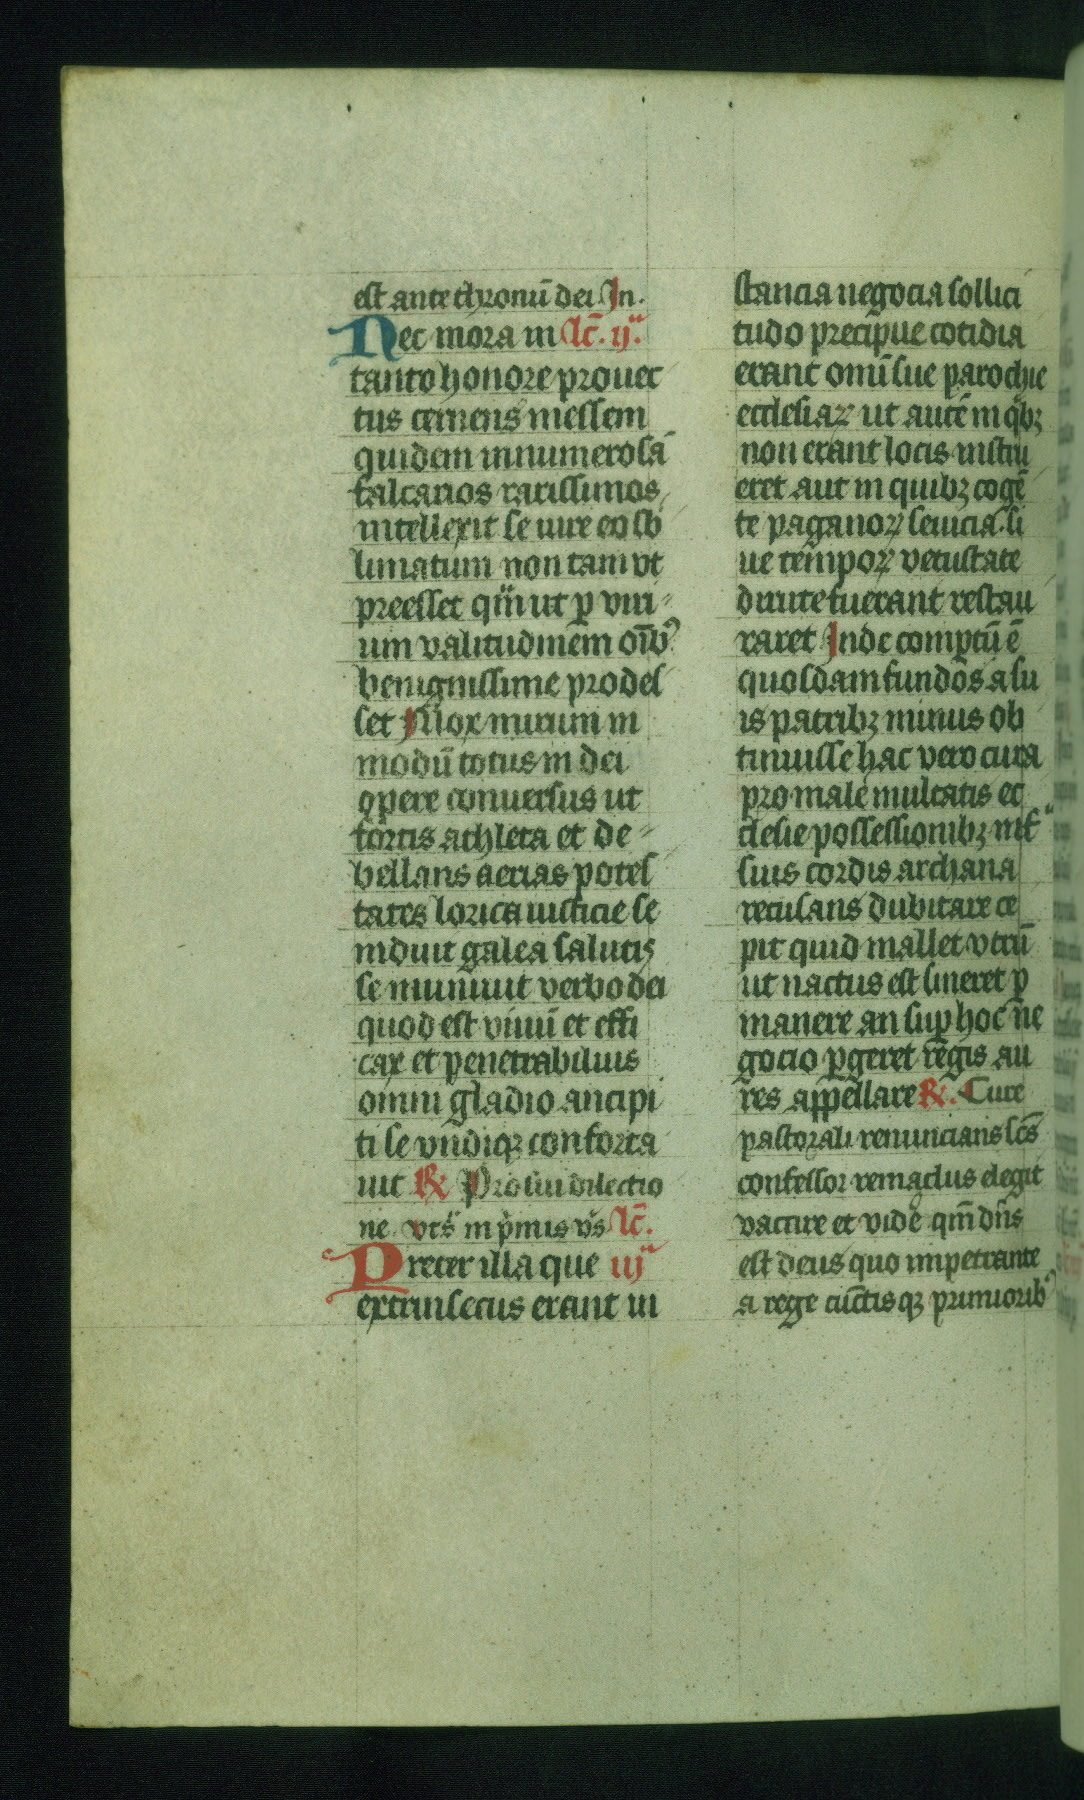 est ante thronū dei In.
Nec mora in lc̄. ijª.
tanto honore prouec
tus cernens messem
quidem innumerosā
falcarios rarissimos
intellexit se iure eo sb̄
limatum non tam vt
preesset qm̄ ut p viri
um valitudinem oīb⁹
benignissime prodes
set Mox mirum in
modū totus in dei
opere conuersus ut
fortis athleta et de
bellans aerias potes
tates lorica iusticie se
induit galea salutis
se muniuit verbo dei
quod est viuū et effi
cax et penetrabilius
omni gladio ancipi
ti se vndiqꝫ conforta
uit ℟ Pro sui dilectio
ne. vts̄ in p̄mis vs̄ lc̄.
Preter illa que iijª
extrinsecus erant in
stancia negocia sollici
tudo precipue cotidia
erant omī sue parochie
ecclesiaꝝ ut autē in qbꝫ
non erant locis instru
eret aut in quibꝫ cogē
te paganoꝝ seuicia. si
ue tempoꝝ vetustate
dirute fuerant restau
raret Inde comptū ē
quosdam fundos a su
is patribꝫ minus ob
tinuisse hac vero cura
pro male multatis ec
clesie possessionibꝫ int̄
sius cordis archana
recusans dubitare ce
pit quid mallet vtrū
ut nactus est sineret ꝑ
manere an suꝑ hoc ne
gocio ꝑgeret regis au
res appellare ℟. Cure
pastorali renuncians scs̄
confessor remaclus elegit
vaccare et videre qm̄ dn̄s
est deus quo impetrante
a rege cūctis qꝫ primiorib⁹